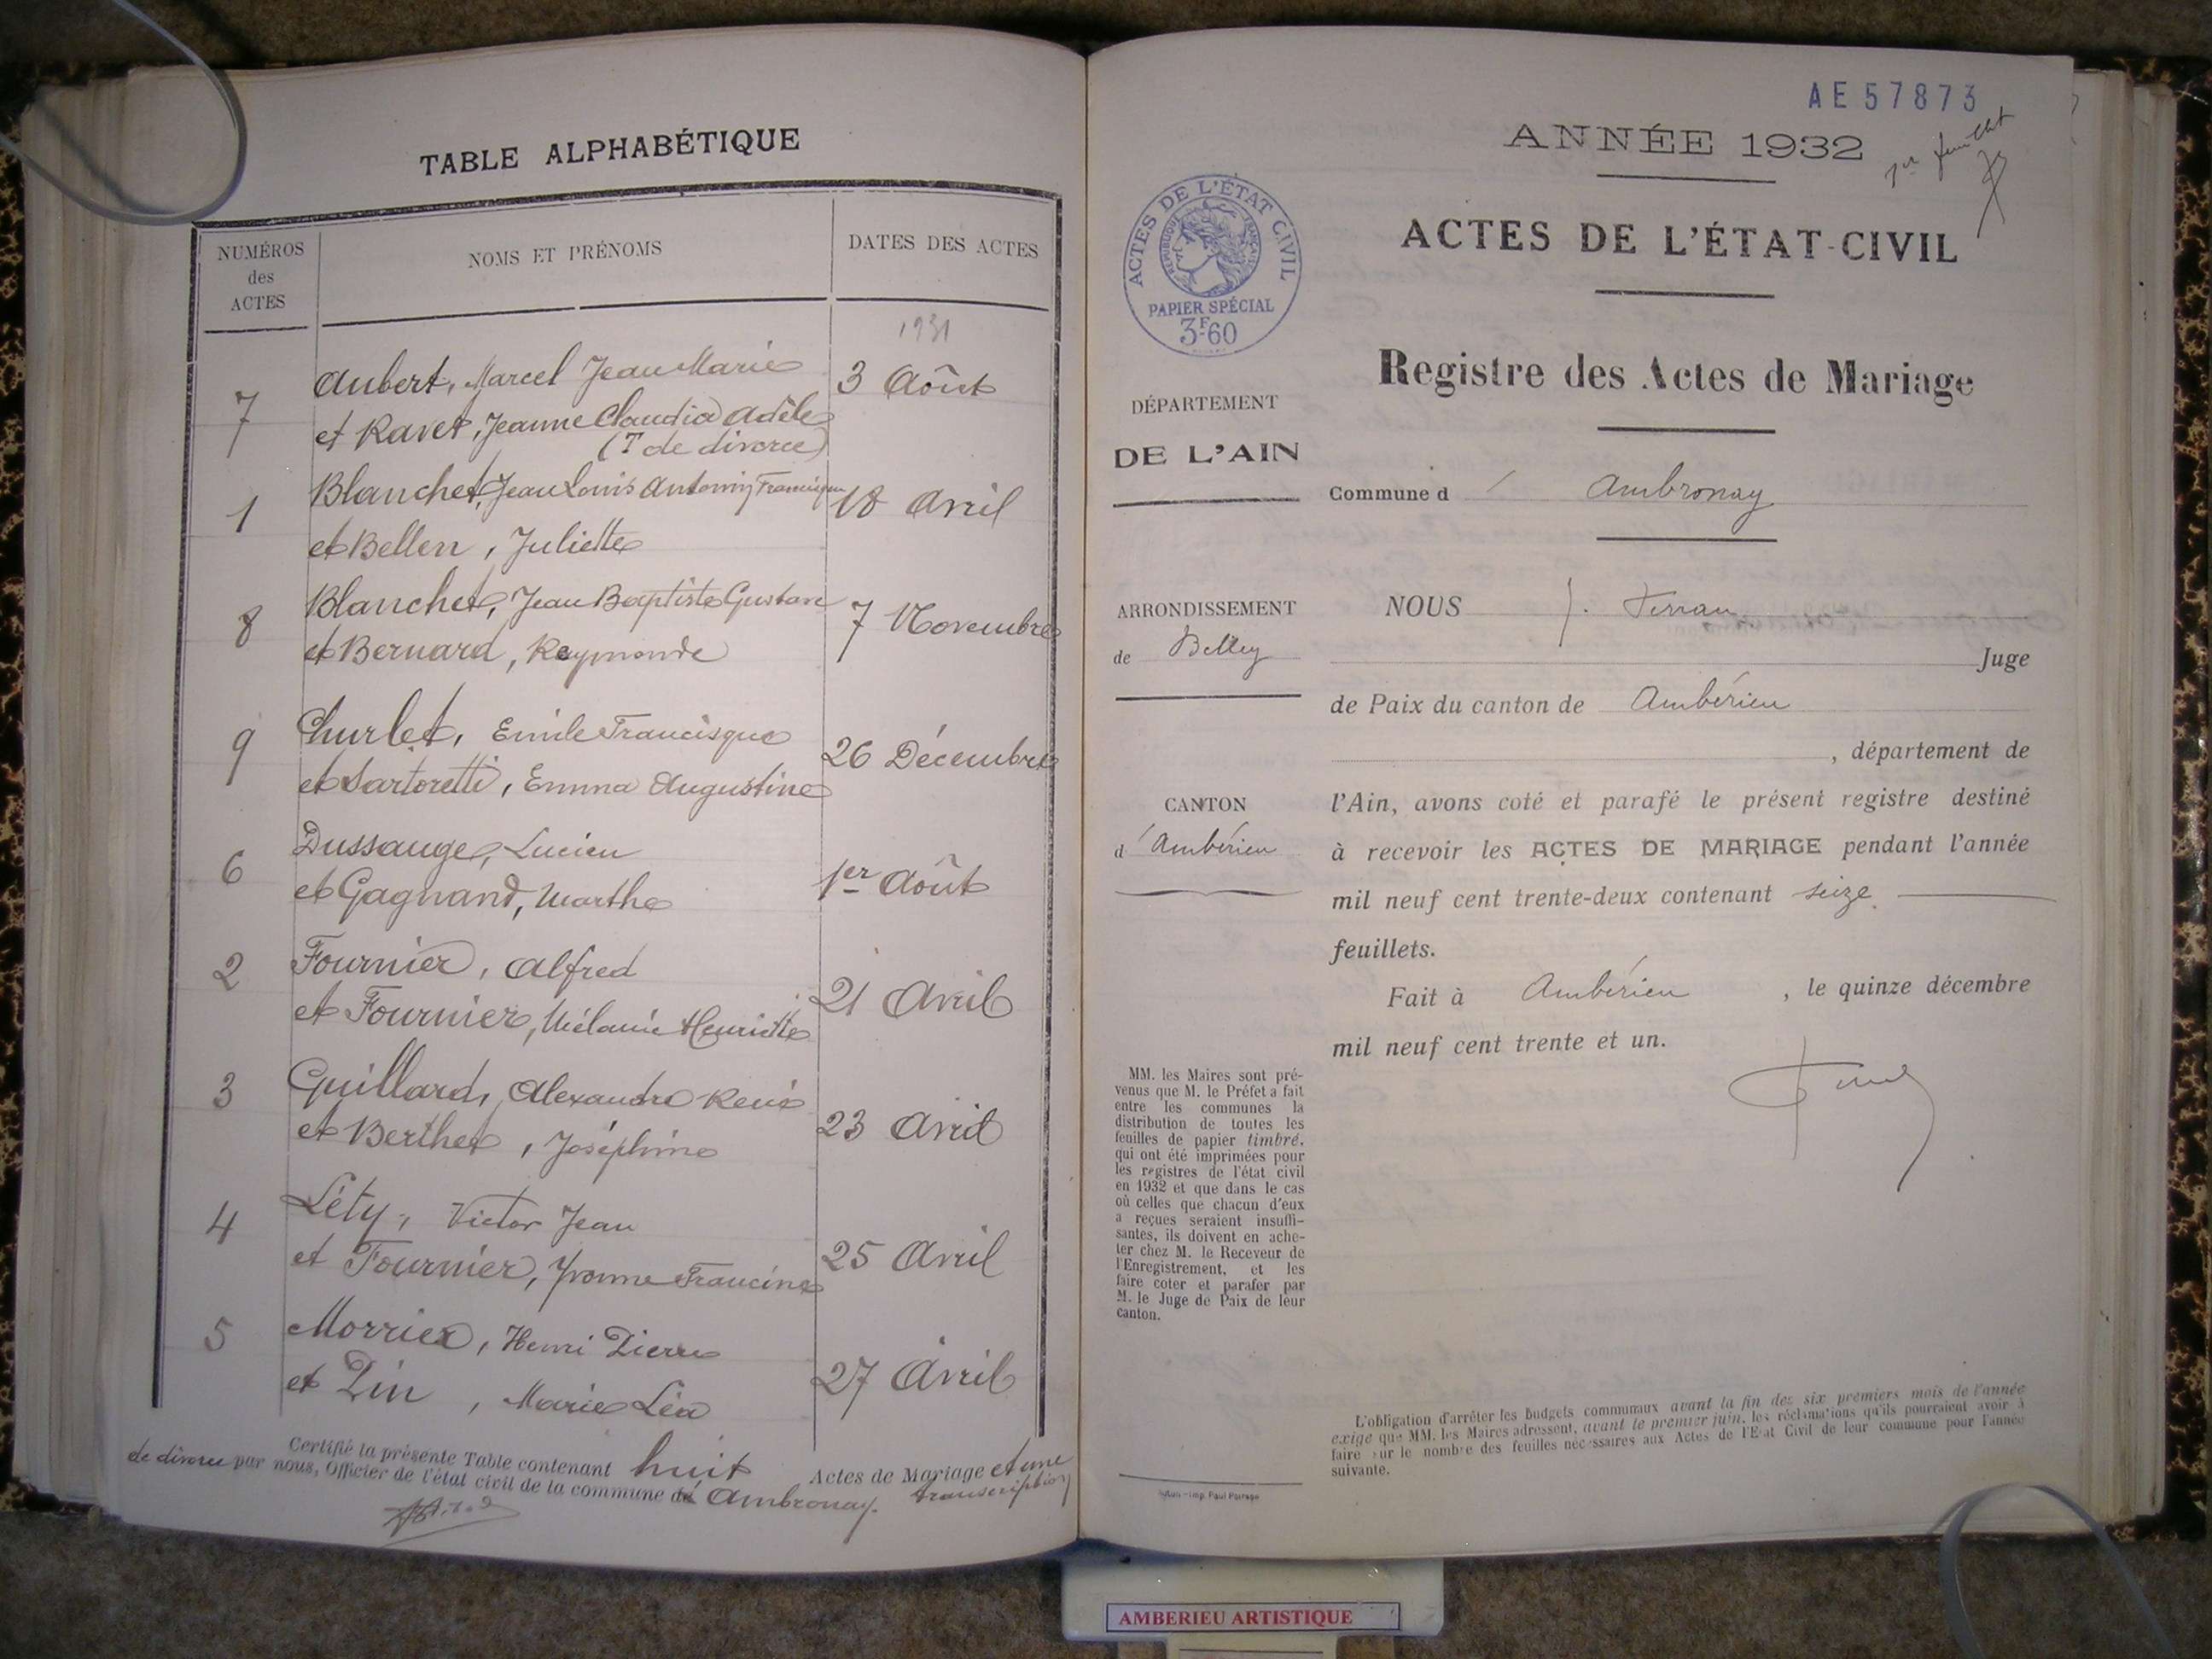 TABLE ALPHABÉTIQUE
NUMÉROS
des
ACTES
NOMS ET PRÉNOMS
DATES DES ACTES
1931
7
Aubert, Marcel Jean Marie
3 Août
et Ravet, Jeanne Claudia Adèle
(T de divorce)
1
Blanchet, Jean Louis Antonin Francisque
18 Avril
et Bellen, Juliette
8
Blanchet, Jean Baptiste Gustave
7 Novembre
et Bernard, Raymonde
9
Churlet, Emile Francisque
26 Décembre
et Sartoretti, Emma Augustine
6
Dussauge, Lucien
1er Août
et Gagnand, Marthe
2
Fournier, Alfred
21 Avril
et Fournier, Mélanie Henriette
3
Guillard, Alexandre René
23 Avril
et Berthet, Joséphine
4
Léty, Victor Jean
25 Avril
et Fournier, Yvonne Francine
5
Morrier, Henri Pierre
27 Avril
et Pin, Marie Léa
Certifié la présente Table contenant huit Actes de Mariage et une transcription
de divorce par nous, Officier de l'état civil de la commune d' Ambronay.
AE 57873
ANNÉE 1932
1er feuillet
ACTES DE L'ÉTAT CIVIL
RÉPUBLIQUE FRANÇAISE
PAPIER SPÉCIAL
3F60
ACTES DE L'ÉTAT-CIVIL
Registre des Actes de Mariage
DÉPARTEMENT
DE L'AIN
Commune d' Ambronay
ARRONDISSEMENT
de Belley
NOUS J.
Juge
de Paix du canton de Ambérieu
, département de
CANTON
d'Ambérieu
l'Ain, avons coté et parafé le présent registre destiné
à recevoir les ACTES DE MARIAGE pendant l'année
mil neuf cent trente-deux contenant seize
feuillets.
Fait à Ambérieu, le quinze décembre
mil neuf cent trente et un.
MM. les Maires sont pré-
venus que M. le Préfet a fait
entre les communes la
distribution de toutes les
feuilles de papier timbré,
qui ont été imprimées pour
les registres de l'état civil
en 1932 et que dans le cas
où celles que chacun d'eux
a reçues seraient insuffi-
santes, ils doivent en ache-
ter chez M. le Receveur de
l'Enregistrement, et les
faire coter et parafer par
M. le Juge de Paix de leur
canton.
L'obligation d'arrêter les budgets communaux avant la fin des six premiers mois de l'année
exige que MM. les Maires adressent, avant le premier juin, les réclamations qu'ils pourraient avoir à
faire sur le nombre des feuilles nécessaires aux Actes de l'Etat Civil de leur commune pour l'année
suivante.
Imp. Paul
AMBERIEU ARTISTIQUE